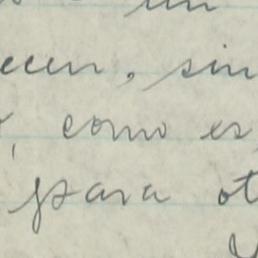 un
ecen, sin
, como es
para ot